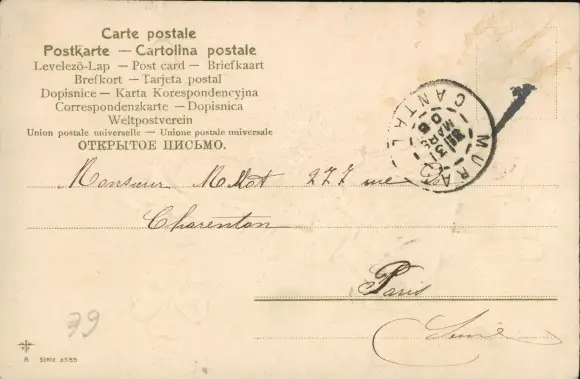 Carte postale
Postkarte — Cartolina postale
Levelezö-Lap — Post card — Briefkaart
Brefkort — Tarjeta postal
Dopisnice — Karta Korespondencyjna
Correspondenzkarte — Dopisnica
Weltpostverein
Union postale universelle — Unione postale universale
ОТКРЫТОЕ ПИСЬМО.
MURAT
CANTAL
31
MARS
06
Monsieur Mollot 277 rue
Charenton
Paris
Seine
39
SERIE